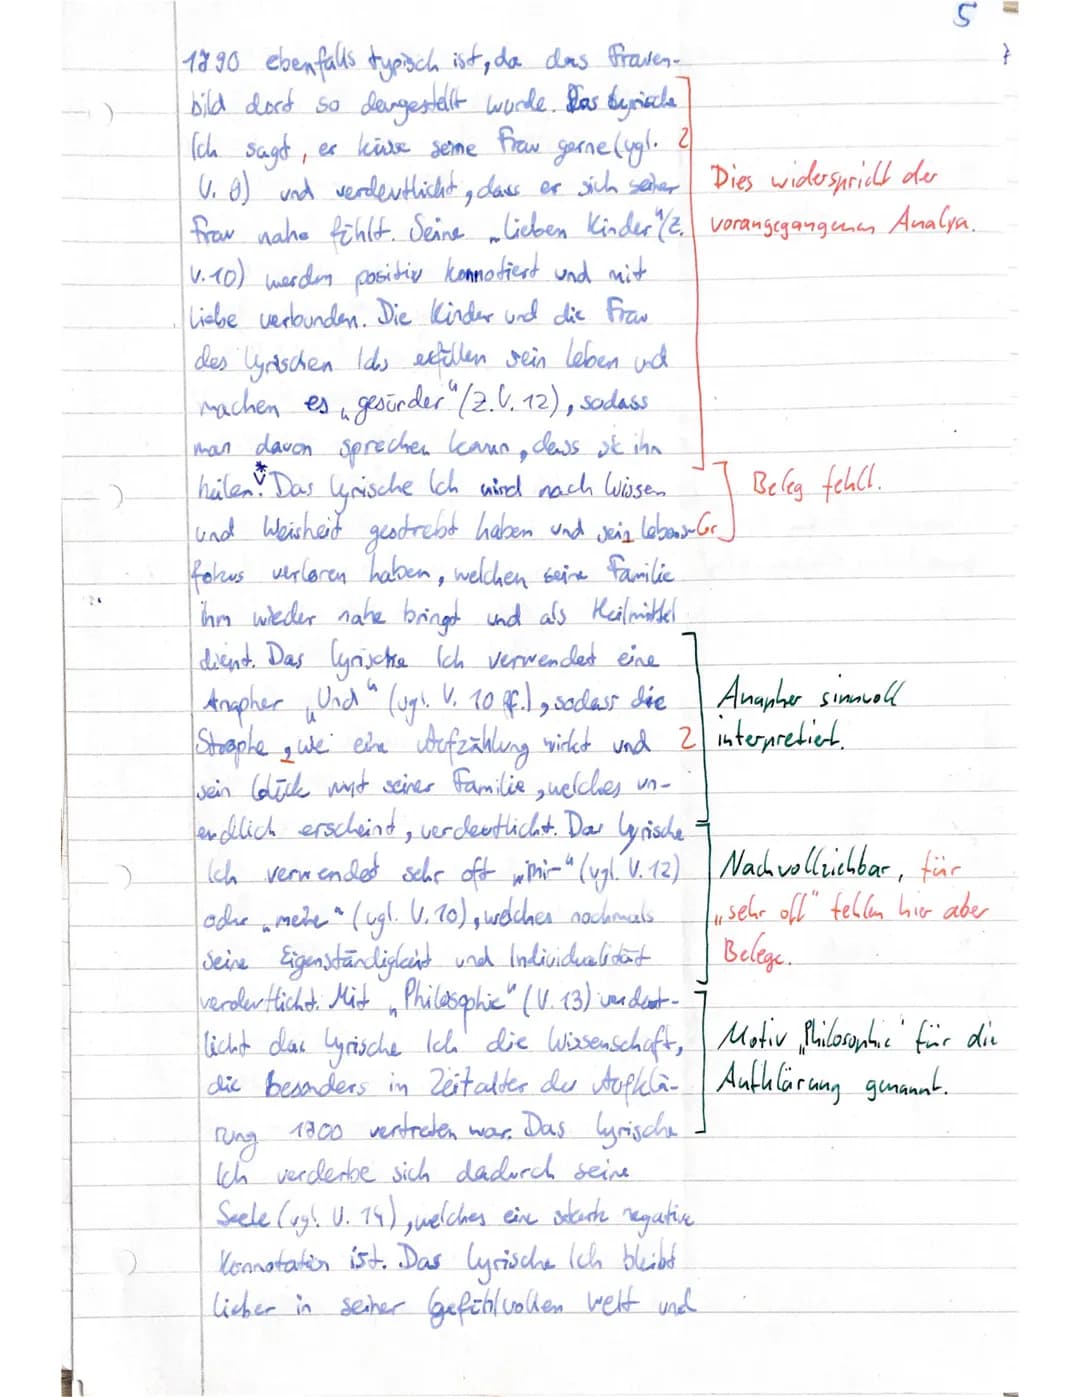 5
1790 ebenfalls typisch ist, da das Frauen-
bild dort so dargestellt wurde. Das lyrische
Ich sagt, er küsse seine Frau gerne (vgl. 2
V. 9) und verdeutlicht, dass er sich seiner
Frau nahe fühlt. Seine „Lieben Kinder" (z.
V. 10) werden positiv konnotiert und mit
Liebe verbunden. Die Kinder und die Frau
des lyrischen Ichs erfüllen sein Leben und
machen es „gesünder" (z. V. 12), sodass
man davon sprechen kann, dass sie ihn
heilen.* Das lyrische Ich wird nach Wissen
und Weisheit gestrebt haben und sein Lebens- Gr
fokus verloren haben, welchen seine Familie
ihm wieder nahe bringt und als Heilmittel
dient. Das lyrische Ich verwendet eine
Anapher „Und" (vgl. V. 10 ff.), sodass die
Strophe, wie eine Aufzählung wirkt und 2
sein Glück mit seiner Familie, welches un-
endlich erscheint, verdeutlicht. Das lyrische
Ich verwendet sehr oft „mir" (vgl. V. 12)
oder „meine" (vgl. V. 10), welches nochmals
seine Eigenständigkeit und Individualität
verdeutlicht. Mit „Philosophie" (V. 13) verdeut-
licht das lyrische Ich die Wissenschaft,
die besonders in Zeitalter der Aufklä-
rung 1700 vertreten war. Das lyrische
Ich verderbe sich dadurch seine
Seele (vgl. V. 14), welches eine starke negative
Konnotation ist. Das lyrische Ich bleibt
lieber in seiner Gefühlvollen Welt und
Dies widerspricht der
vorangegangenen Analyse.
Beleg fehlt.
Anapher sinnvoll
interpretiert.
Nachvollziehbar, für
„sehr oft" fehlen hier aber
Belege.
Motiv „Philosophie' für die
Aufklärung genannt.